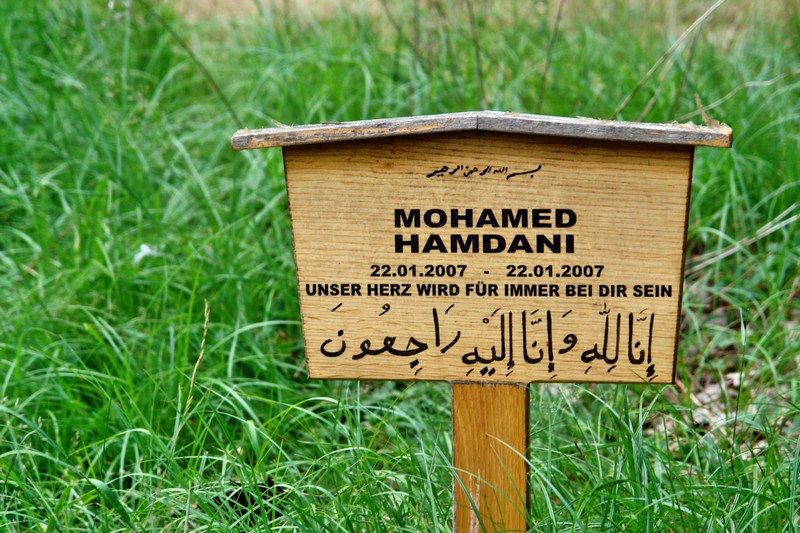 بسم الله الرحمن الرحيم
MOHAMED
HAMDANI
22.01.2007 - 22.01.2007
UNSER HERZ WIRD FÜR IMMER BEI DIR SEIN
إِنَّا لِلَّهِ وَإِنَّا إِلَيْهِ رَاجِعُونَ